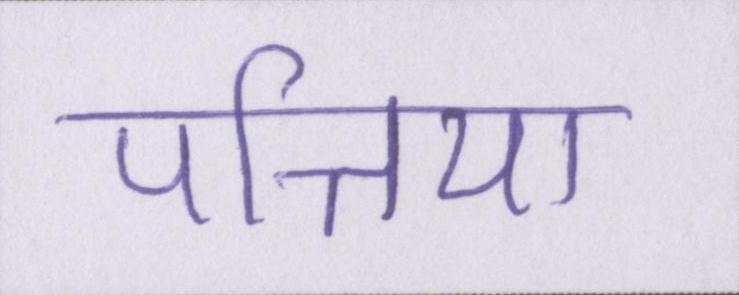 पत्तिया